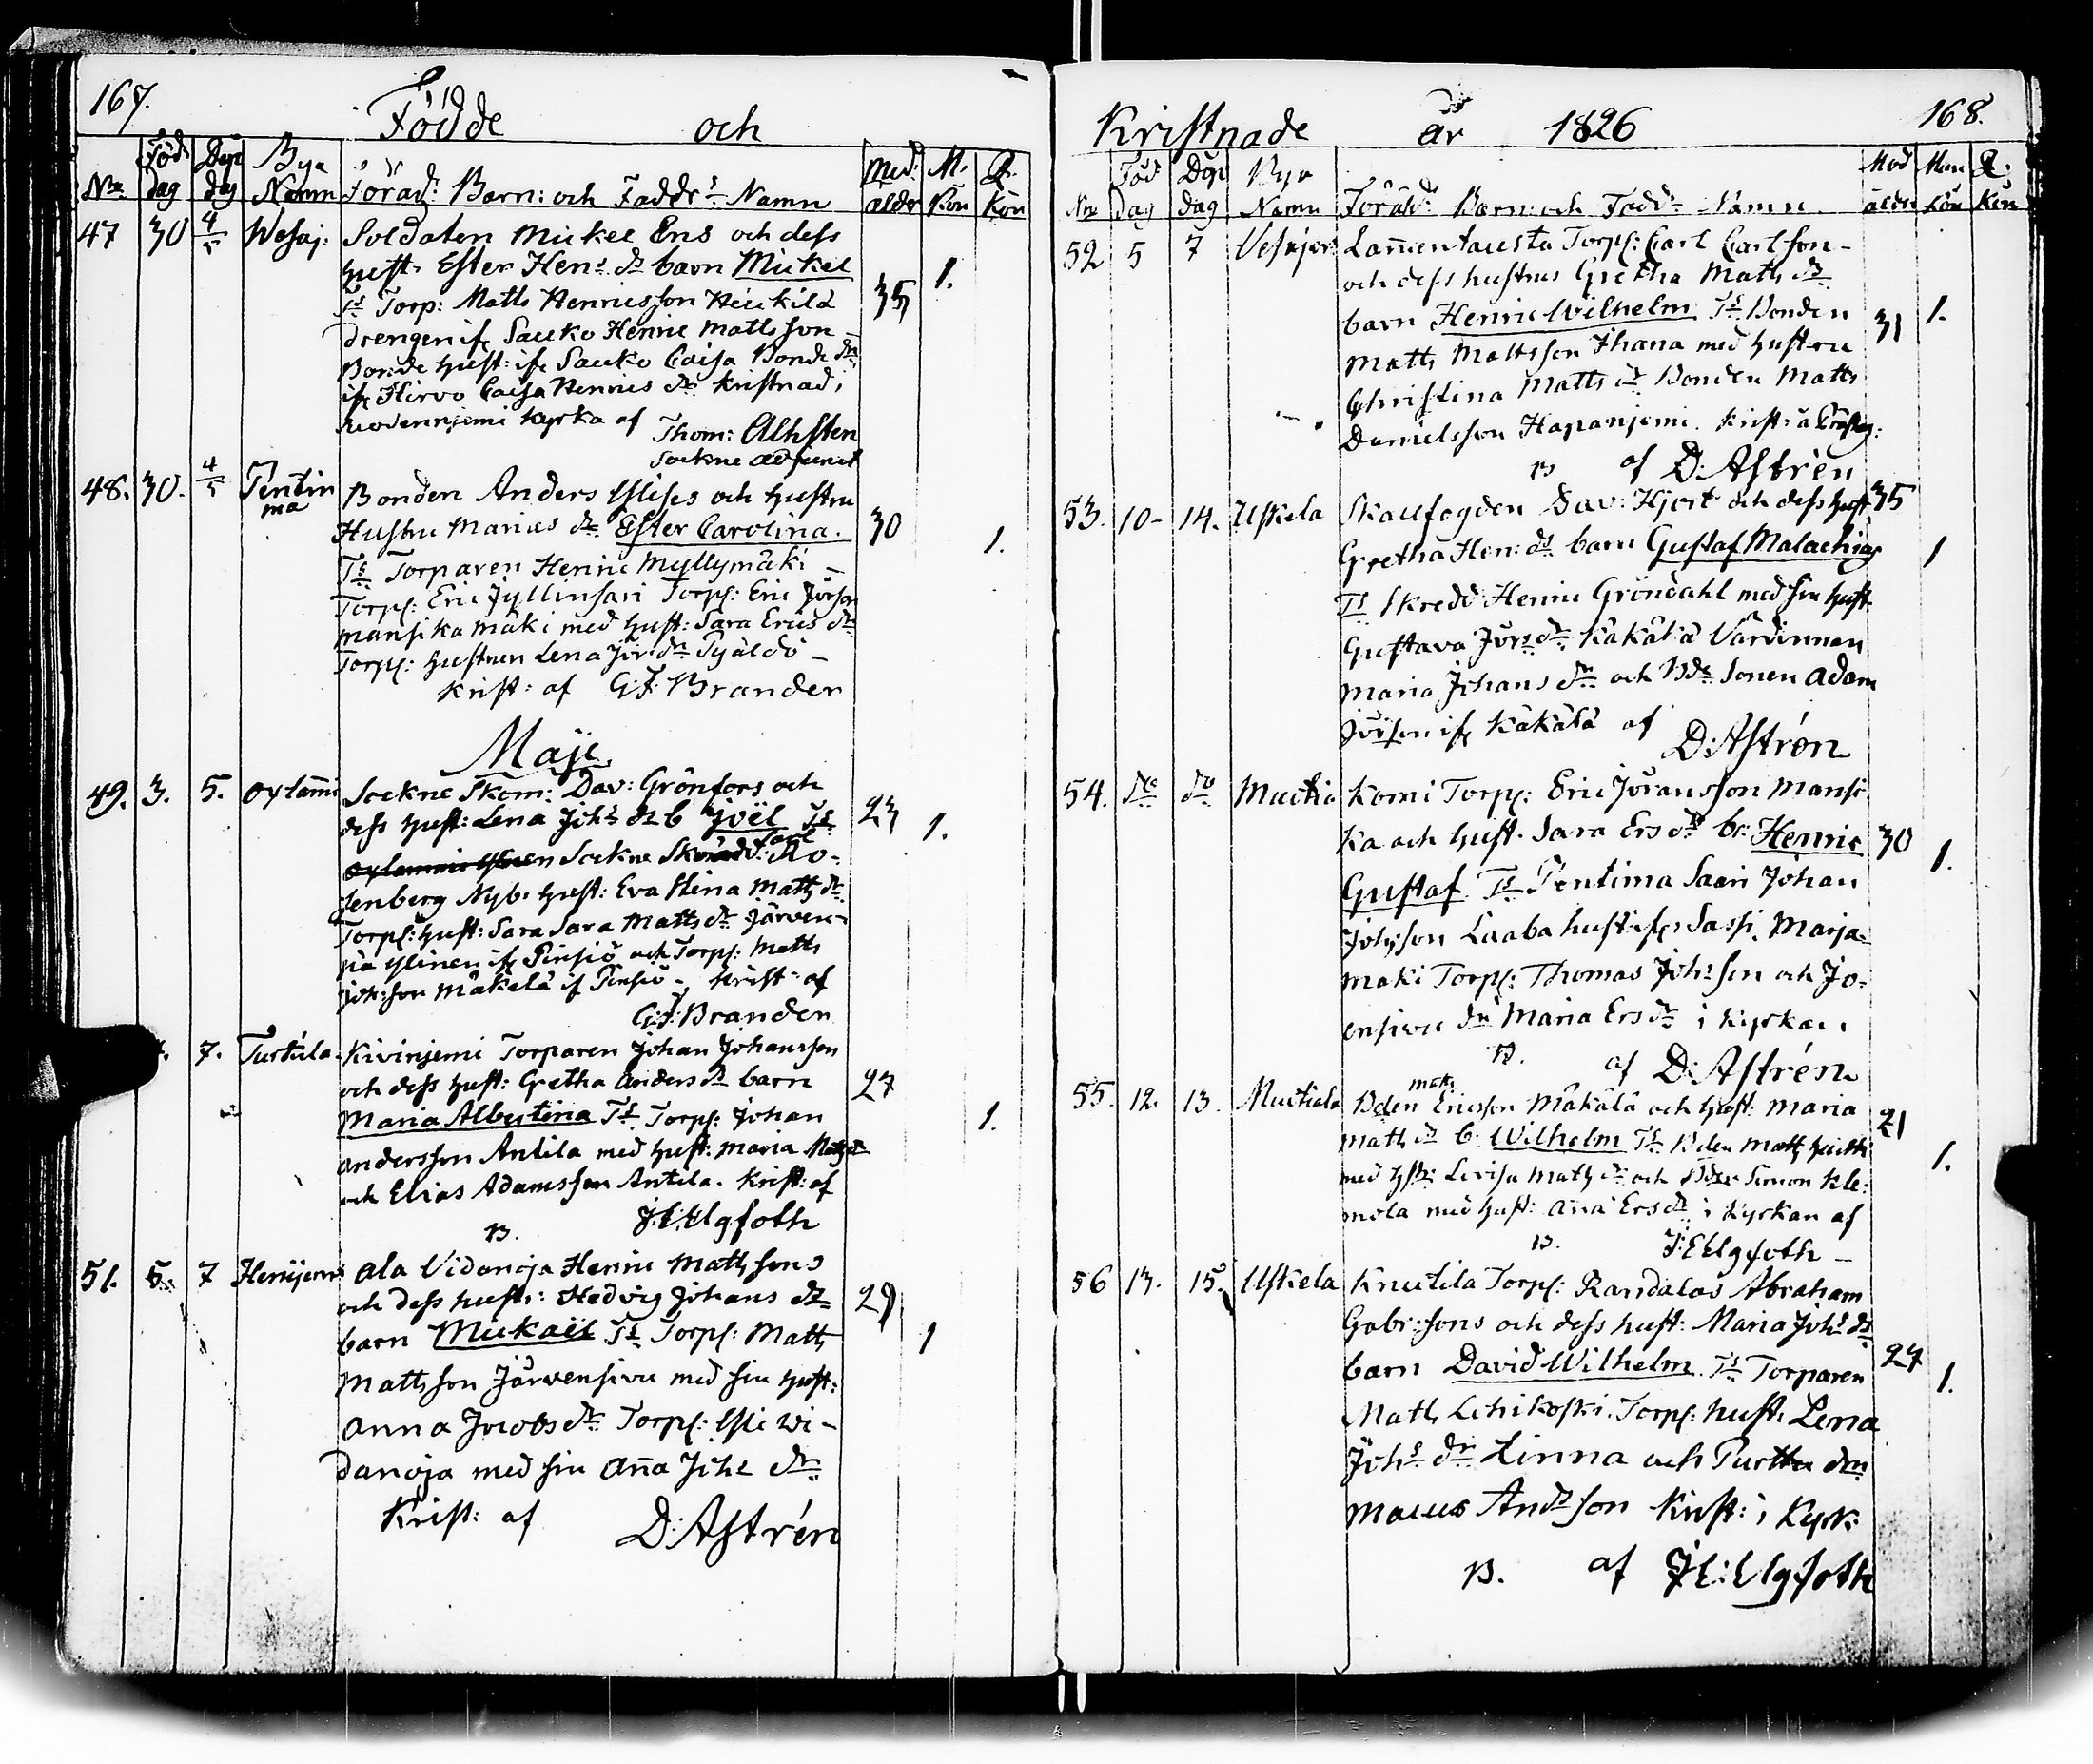 167.
Födde och
Nro Föd: dag Döp dag Bya Namn Föräd: Barn: och Faddrs Namn Mod: ålder M. Kön Q. Kön
47 30 4/5 Wesaj: Soldaten Mickel Ens och dess
hust: Ester Hens dr barn Mickel 35 1.
Ts Torp: Matts Henricsson Heickilä
Drengen ifr Sauko Henric Mattsson
Bonde hust: ifr Sauko Caisa Bonde dr
ifr Hirvo Caisa Henrics dr kristnad i
Suodennjemi kyrka af
Thom: Alhsten
Sockne adjunct
48. 30. 4/5 Pentin
ma
Bonden Anders Ylises och hustru
Hustru Marias dr Ester Carolina. 30 1.
Ts Torparen Henric Myllymäki –
Torp: Eric Jyllinsari Torp: Eric Jörson
mansika mäki med hust: Sara Erics dr
Torp: hustrun Lena Jör: dr Pjäldö –
Krist: af G:F: Brander
Maji
49. 3. 5. Oxlami Sockne Skom: Dav: Grönfors och
dess hust: Lena Johs dr b Joël Ts 23 1.
Sockne Skrädd: Carl Ro-
senberg Nyb: hust: Eva Stina Matts dr
Torp: hust: Sara Sara Matts dr Järven-
pä Ylinen ifr Pinsiö och Torp: Matts
Joh:son Mäkelä if Pinsiö –, Krist: af
G:F: Brander
7. Turkila. Kivinjemi Torparen Johan Johansson
och dess hust: Gretha Anders dr barn 27
Maria Albertina Ts Torp: Johan 1.
Andersson Antila med hust: Maria Matts dr
och Elias Adamsson Antila. Krist: af
B. J:E:Elgfoth
51. 5. 7 Henijemi Ala Vidanoja Henric Matts sons
och dess hust: Hedvig Johans dr 29
barn Mickaël Ts Torp: Matts 1
Matts son Järvensivu med sin hust:
Anna Jacobs dr Torp: Ylie Wi-
danoja med sin Ana Johs dr
Krist: af D: Astrén
Kristnade år 1826 168.
Nro Föd dag Döp dag Bya Namn Föräld: Barn: och Fadd: Namn Mod åldr Man Kön Q. Kön
52 5 7 Vesajer Lamentausta Torp: Carl Carlson –
och dess hustrus Gretha Matts dr
barn Henric Wilhelm Ts Bonden 31 1.
Matts Mattsson Ihana med hustru
Christina Matts dr Bonden Matts
Danielsson Hapanjemi. Krist: i Prästg:
B af D: Astrèn
53. 10– 14. Uskela Skallfogden Dav: Hjort och dess hust 35
Gretha Hen: dr barn Gustaf Malachias 1
Ts Skredd: Henric Gröndahl med sin hust
Gustava Jörs dr Käkälä Värdinnan
Maria Johans dr och Bde Sonen Adam
Jörson ifr Käkälä af
D: Astrén
54. do do Muctia Komi Torp: Eric Jöransson Mansi-
ka och hust. Sara Ers dr br: Henric 30 1.
Gustaf Ts Pentima Saari Johan
Johsson Laaba hust: ifr Sassi, Marja-
mäki Torp: Thomas Johsson och Jo-
ensivu dn Maria Ers dr i kyrkan
B. af D: Astrén
55. 12. 13. Muctiala Bden Mats Ericsson Mäkälä och hust: Maria 21
Matts dr b. Wilhelm Ts Bden Matts 1.
med hstr: Lovisa Matts dr och Bder Simon Kle-
mola med hust: Ana Ers dr i Kyrkan af
B. J:E:Elgfoth –
56 13. 15. Uskela Knutila Torp: Randalas Abraham
Gabr:sons och dess hust: Maria Johs dr
barn David Wilhelm. Ts Torparen 24 1.
Matts Lehikoski. Torp: hust: Lena
Johs dr Linna och Purttu drn
Matts Andsson Krist: i Kyrk:
B. af J:E:Elgfoth